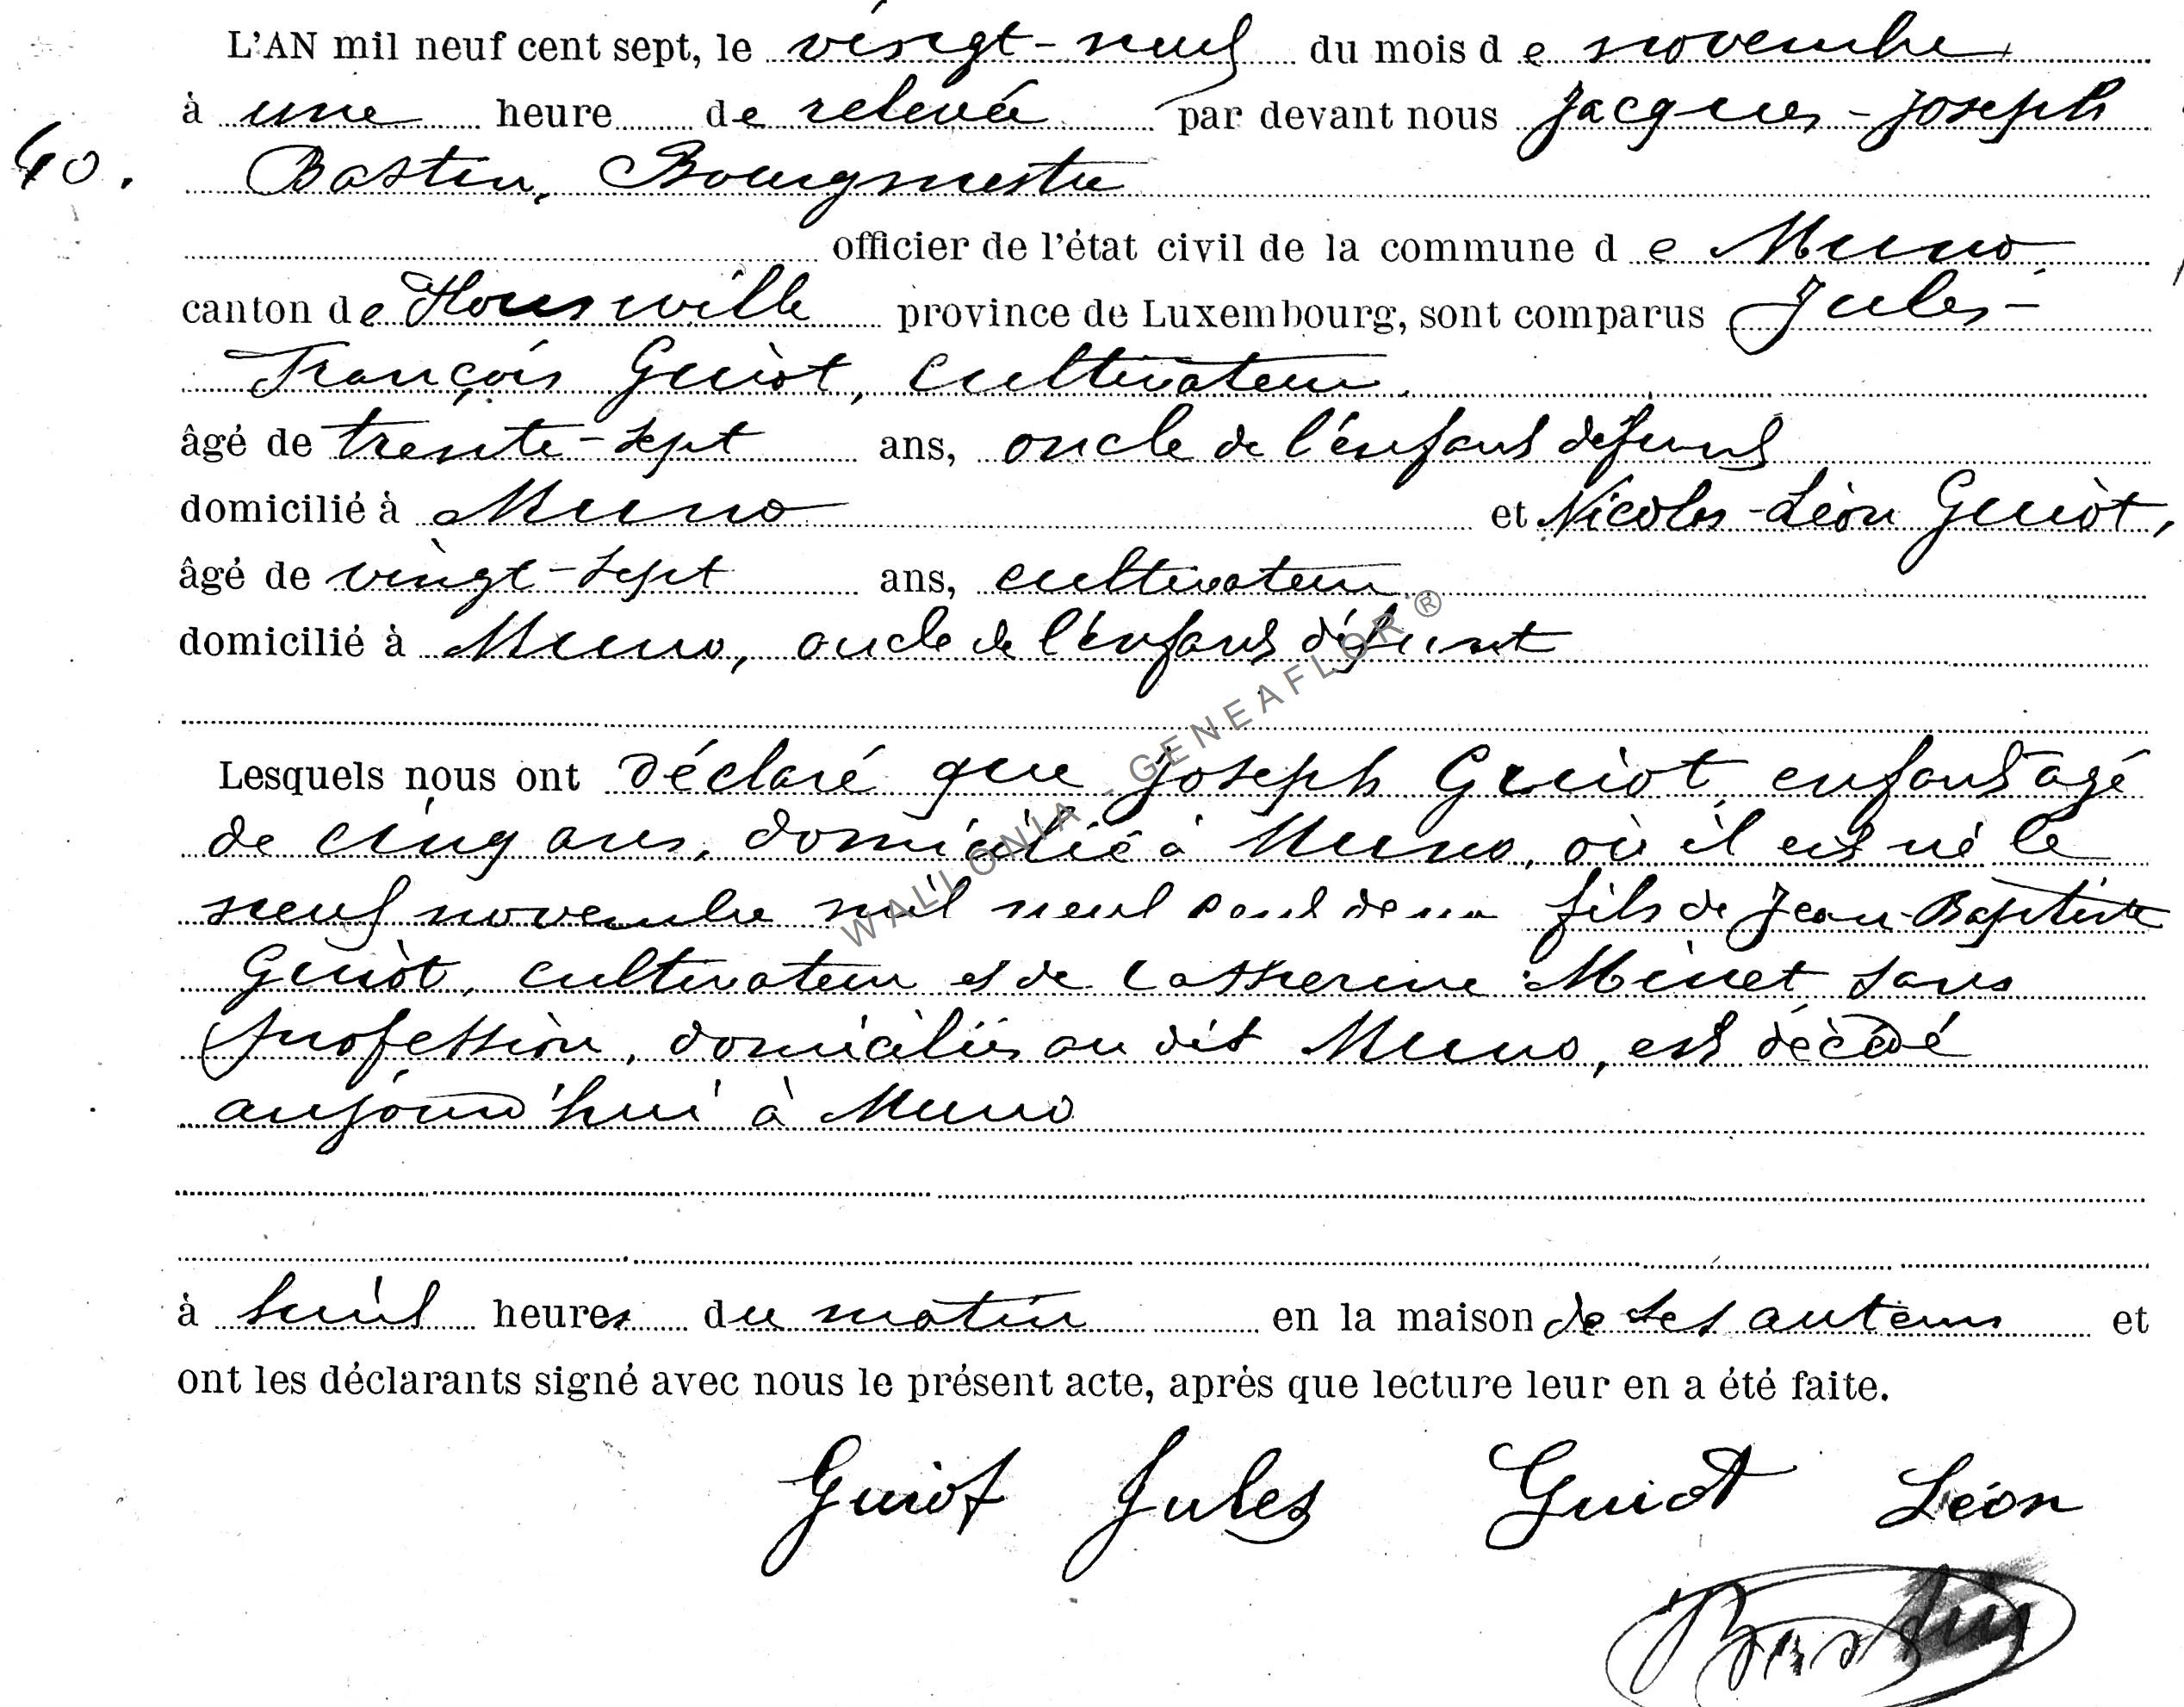 L'AN mil neuf cent sept, le vingt-neuf du mois de novembre
à une heure de relevée par devant nous Jacques-Joseph
40.
Bastin, Bourgmestre
officier de l'état civil de la commune de Muno,
canton de Florenville province de Luxembourg, sont comparus Jules-
François Guiot, cultivateur,
âgé de trente-sept ans, oncle de l'enfant défunt
domicilié à Muno et Nicolas-Léon Guiot,
âgé de vingt-sept ans, cultivateur
domicilié à Muno, oncle de l'enfant défunt
Lesquels nous ont déclaré que Joseph Guiot, enfant âgé
de cinq ans, domicilié à Muno, où il est né le
neuf novembre mil neuf cent deux fils de Jean-Baptiste
Guiot, cultivateur et de Catherine Minet sans
profession, domiciliés au dit Muno, est décédé
aujourd'hui à Muno
à huit heures du matin en la maison de ses auteurs et
ont les déclarants signé avec nous le présent acte, après que lecture leur en a été faite.
Guiot Jules Guiot Léon
Bastin
WALLONIA - GENEAFLOR ®